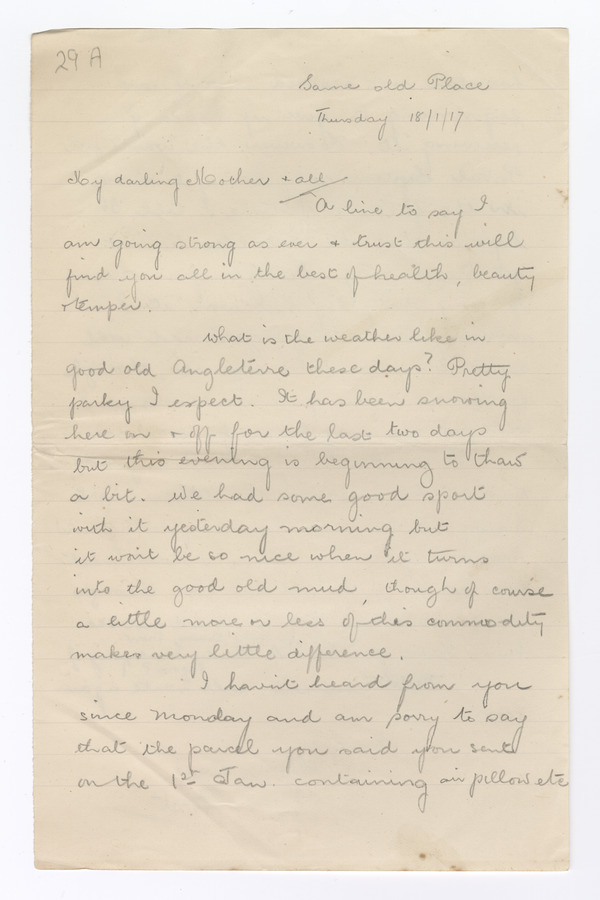 29 A
Same old Place
Thursday 18/1/17
My darling Mother + all
A line to say I
am going strong as ever + trust this will
find you all in the best of health, beauty
+ temper.
What is the weather like in
good old Angleterre these days? Pretty
parky I expect. It has been snowing
here on + off for the last two days
but this evening is beginning to thaw
a bit. We had some good sport
with it yesterday morning but
it won't be so nice when it turns
into the good old mud, though of course
a little more or less of this commodity
makes very little difference.
I havn't heard from you
since Monday and am sorry to say
that the parcel you said you sent
on the 1st Jan. containing air pillow etc